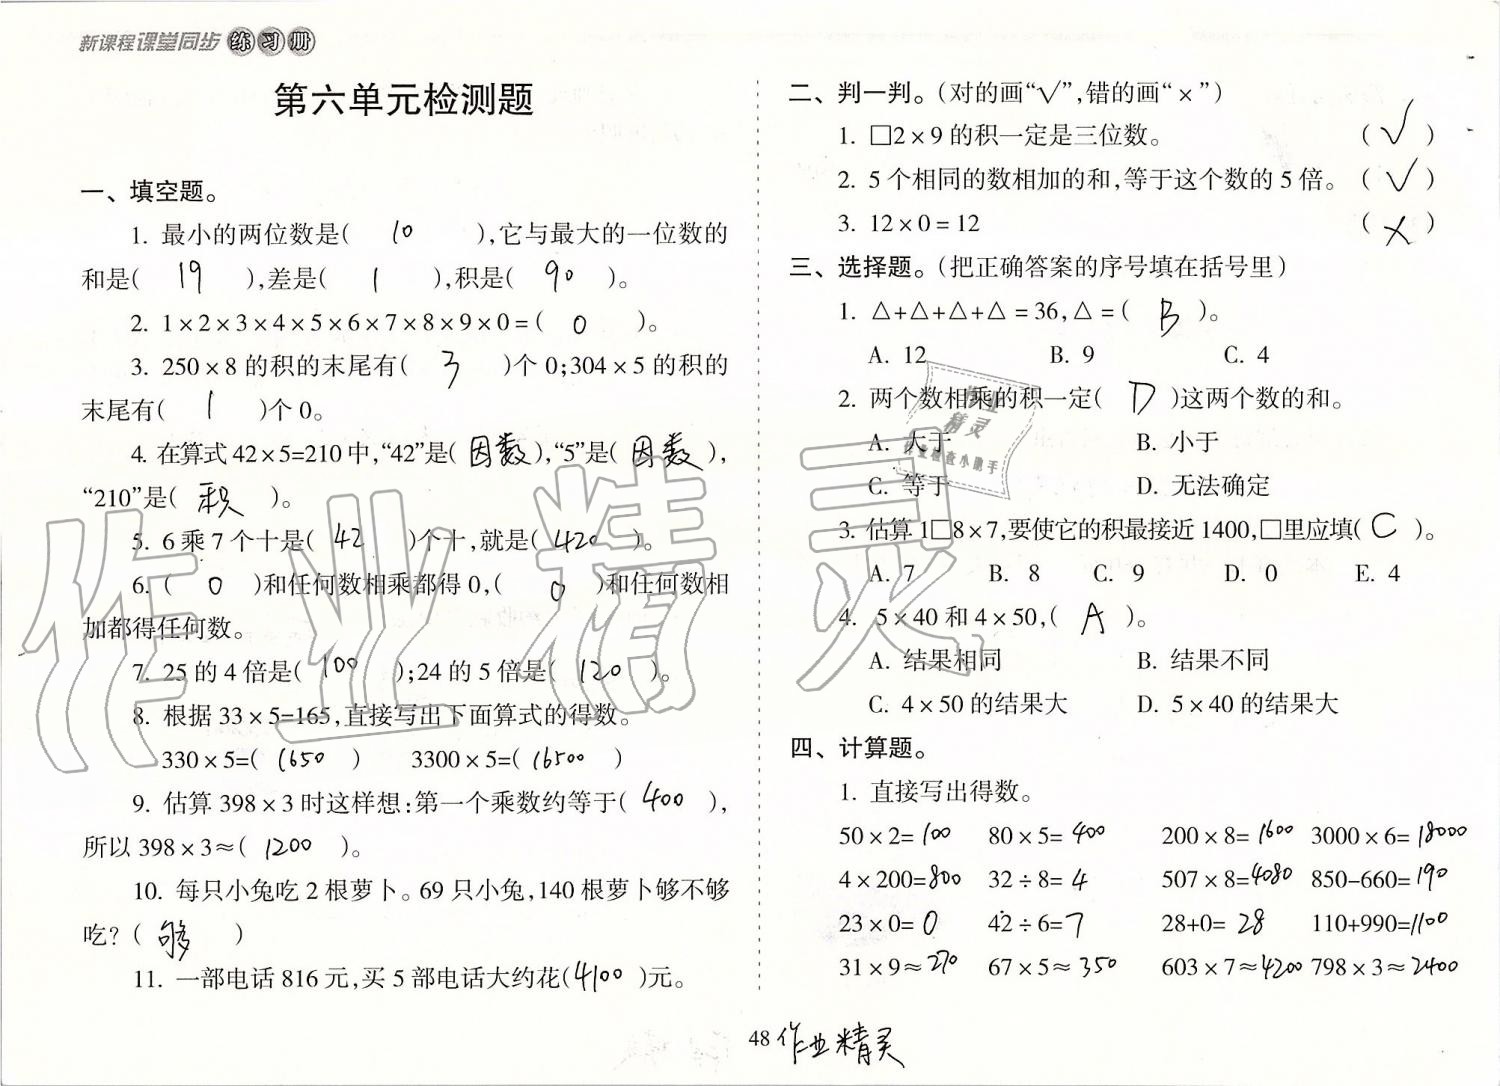 新课程课堂同步练习册
第六单元检测题
一、填空题。
1. 最小的两位数是( 10 ),它与最大的一位数的
和是( 19 ),差是( 1 ),积是( 90 )。
2. 1×2×3×4×5×6×7×8×9×0=( 0 )。
3. 250×8的积的末尾有( 3 )个0;304×5的积的
末尾有( 1 )个0。
4. 在算式42×5=210中,“42”是( 因数 ),“5”是( 因数 ),
“210”是( 积 )。
5. 6乘7个十是( 42 )个十,就是( 420 )。
6. ( 0 )和任何数相乘都得0,( 0 )和任何数相
加都得任何数。
7. 25的4倍是( 100 );24的5倍是( 120 )。
8. 根据33×5-165,直接写出下面算式的得数。
330×5=( 1650 ) 3300×5=( 16500 )
9. 估算398×3时这样想:第一个乘数约等于( 400 ),
所以398×3≈( 1200 )。
10. 每只小兔吃2根萝卜。69只小兔,140根萝卜够不够
吃?( 够 )
11. 一部电话816元,买5部电话大约花( 4100 )元。
二、判一判。(对的画“√”,错的画“×”)
1. □2×9的积一定是三位数。 ( √ )
2. 5个相同的数相加的和,等于这个数的5倍。 ( √ )
3. 12×0=12 ( × )
三、选择题。(把正确答案的序号填在括号里)
1. △+△+△+△=36,△=( B )。
A. 12 B. 9 C. 4
2. 两个数相乘的积一定( D )这两个数的和。
A. 大于 B. 小于
C. 等于 D. 无法确定
3. 估算1□8×7,要使它的积最接近1400,□里应填( C )。
A. 7 B. 8 C. 9 D. 0 E. 4
4. 5×40和4×50,( A )。
A. 结果相同 B. 结果不同
C. 4×50的结果大 D. 5×40的结果大
四、计算题。
1. 直接写出得数。
50×2=100 80×5=400 200×8=1600 3000×6=18000
4×200=800 32÷8=4 507×8=4080 850-660=190
23×0=0 42÷6=7 28+0=28 110+990=1100
31×9≈270 67×5≈350 603×7≈4200 798×3≈2400
48 作业精灵
作业精灵
作业精灵
作业检查小助手